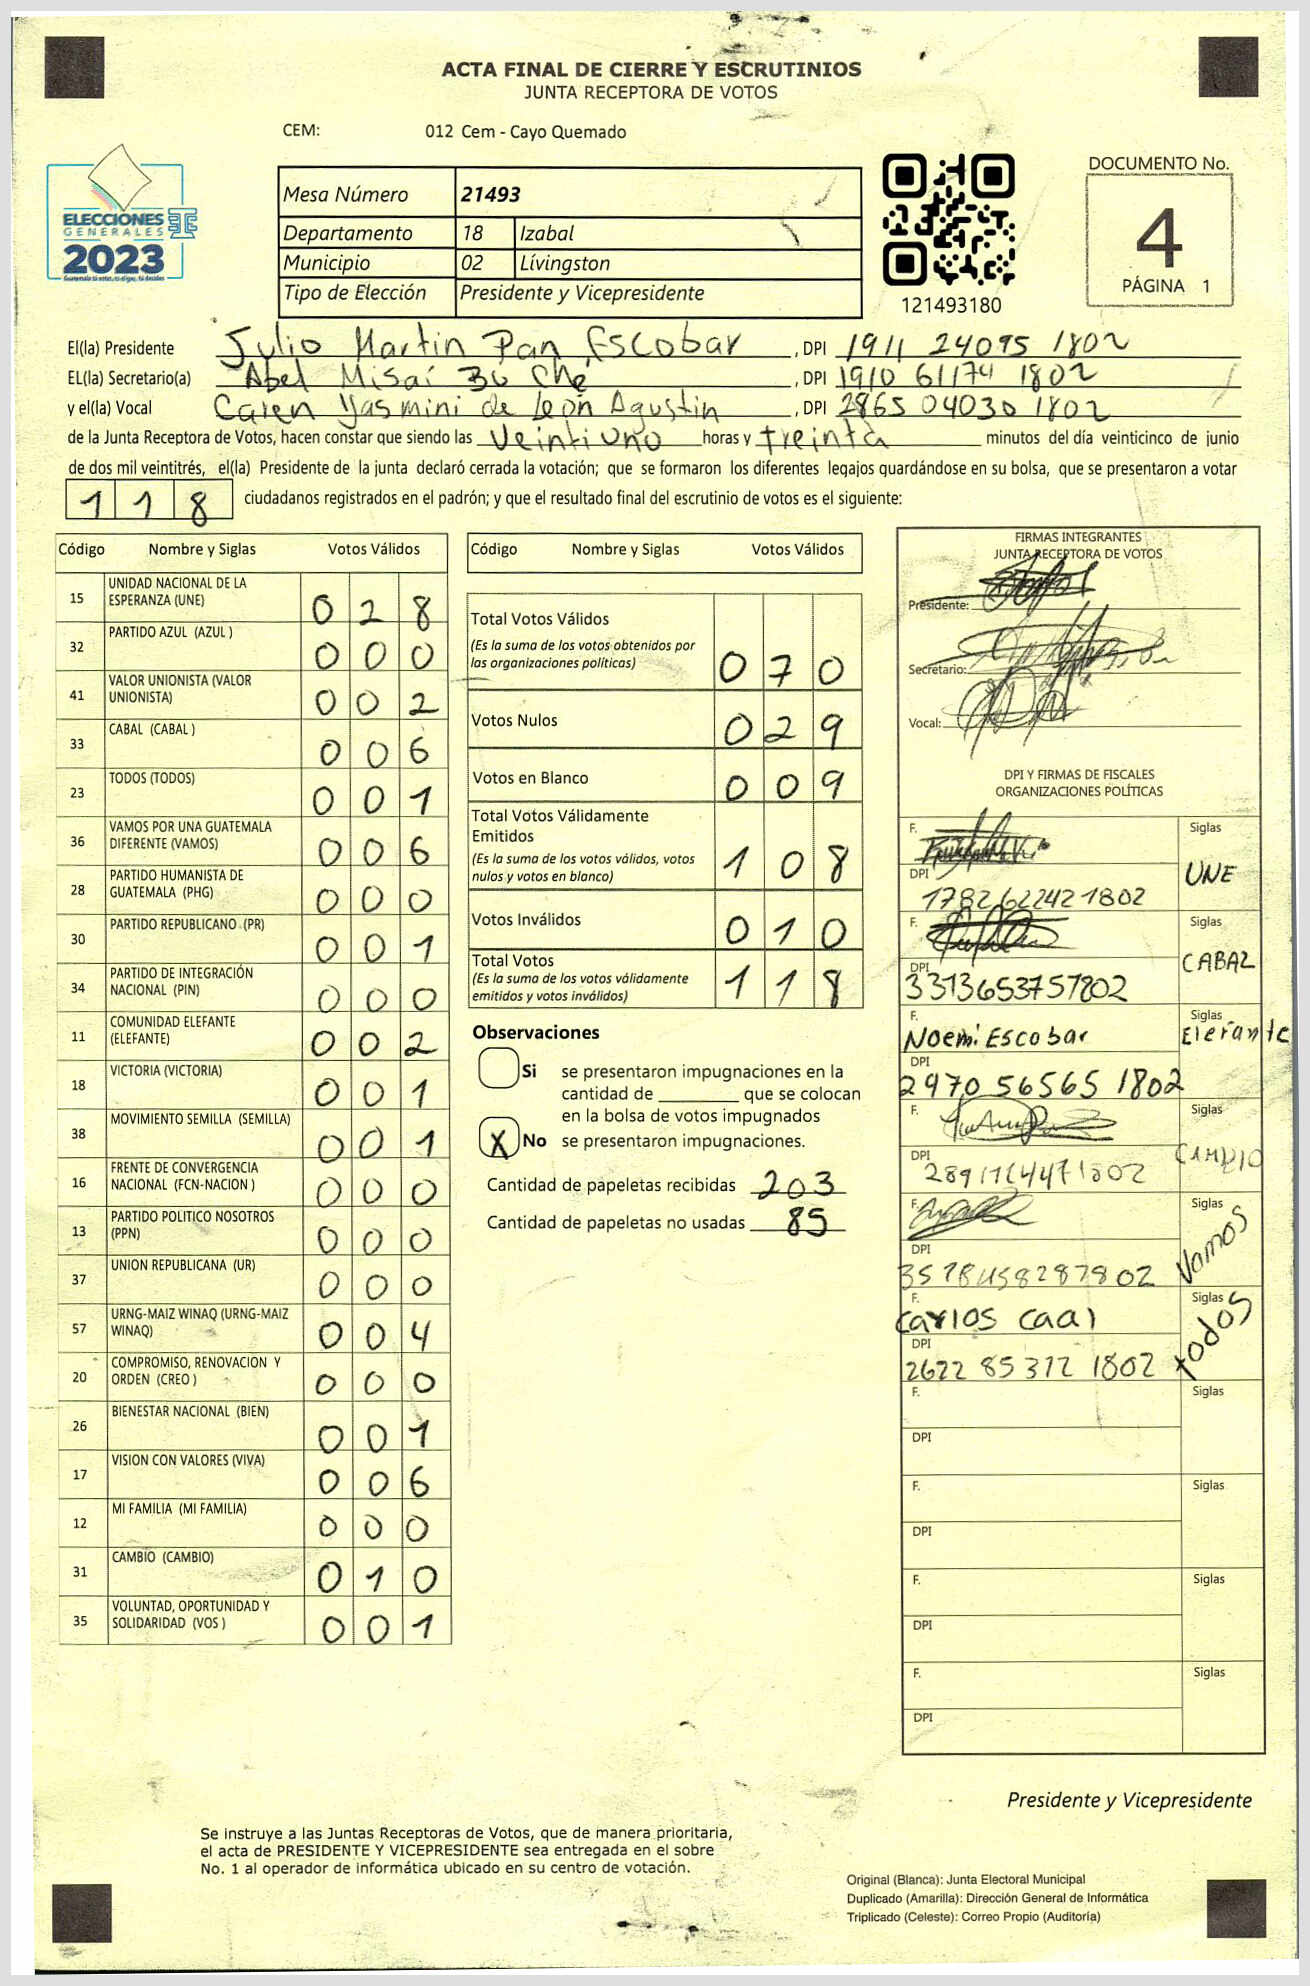 ACTA FINAL DE CIERRE Y ESCRUTINIOS
JUNTA RECEPTORA DE VOTOS
CEM: 012 Cem - Cayo Quemado
ELECCIONES
GENERALES
2023
Mesa Número 21493
Departamento 18 Izabal
Municipio 02 Lívingston
Tipo de Elección Presidente y Vicepresidente
121493180
DOCUMENTO No.
4
PÁGINA 1
El(la) Presidente Julio Martin Pan Escobar , DPI 1911 24095 1802
EL(la) Secretario(a) Abel Misaí Bó Ché , DPI 1910 61174 1802
y el(la) Vocal Caren Yasmini de León Agustin , DPI 2865 04030 1802
de la Junta Receptora de Votos, hacen constar que siendo las Veintiuno horas y treinta minutos del día veinticinco de junio
de dos mil veintitrés, el(la) Presidente de la junta declaró cerrada la votación; que se formaron los diferentes legajos guardándose en su bolsa, que se presentaron a votar
118 ciudadanos registrados en el padrón; y que el resultado final del escrutinio de votos es el siguiente:
Código Nombre y Siglas Votos Válidos
15 UNIDAD NACIONAL DE LA ESPERANZA (UNE) 028
32 PARTIDO AZUL (AZUL ) 000
41 VALOR UNIONISTA (VALOR UNIONISTA) 002
33 CABAL (CABAL ) 006
23 TODOS (TODOS) 001
36 VAMOS POR UNA GUATEMALA DIFERENTE (VAMOS) 006
28 PARTIDO HUMANISTA DE GUATEMALA (PHG) 000
30 PARTIDO REPUBLICANO (PR) 001
34 PARTIDO DE INTEGRACIÓN NACIONAL (PIN) 000
11 COMUNIDAD ELEFANTE (ELEFANTE) 002
18 VICTORIA (VICTORIA) 001
38 MOVIMIENTO SEMILLA (SEMILLA) 001
16 FRENTE DE CONVERGENCIA NACIONAL (FCN-NACION ) 000
13 PARTIDO POLITICO NOSOTROS (PPN) 000
37 UNION REPUBLICANA (UR) 000
57 URNG-MAIZ WINAQ (URNG-MAIZ WINAQ) 004
20 COMPROMISO, RENOVACION Y ORDEN (CREO ) 000
26 BIENESTAR NACIONAL (BIEN) 001
17 VISION CON VALORES (VIVA) 006
12 MI FAMILIA (MI FAMILIA) 000
31 CAMBIO (CAMBIO) 010
35 VOLUNTAD, OPORTUNIDAD Y SOLIDARIDAD (VOS ) 001
Código Nombre y Siglas Votos Válidos
Total Votos Válidos 070
(Es la suma de los votos obtenidos por
las organizaciones políticas)
Votos Nulos 029
Votos en Blanco 009
Total Votos Válidamente
Emitidos 108
(Es la suma de los votos válidos, votos
nulos y votos en blanco)
Votos Inválidos 010
Total Votos 118
(Es la suma de los votos válidamente
emitidos y votos inválidos)
Observaciones
Si se presentaron impugnaciones en la
cantidad de ________ que se colocan
en la bolsa de votos impugnados
X No se presentaron impugnaciones.
Cantidad de papeletas recibidas 203
Cantidad de papeletas no usadas 85
FIRMAS INTEGRANTES
JUNTA RECEPTORA DE VOTOS
Presidente:
Secretario:
Vocal:
DPI Y FIRMAS DE FISCALES
ORGANIZACIONES POLÍTICAS
F. Siglas
UNE
DPI
1782622421802
F. Siglas
CABAL
DPI
3313653751802
F. Siglas
Noemi Escobar Elefante
DPI
2970 56565 1802
F. Siglas
CAMBIO
DPI
2891764471802
F. Siglas
Vamos
DPI
3578458287802
F. Siglas
Carlos Caal todos
DPI
2622 85372 1802
F. Siglas
DPI
F. Siglas
DPI
F. Siglas
DPI
F. Siglas
DPI
Presidente y Vicepresidente
Se instruye a las Juntas Receptoras de Votos, que de manera prioritaria,
el acta de PRESIDENTE Y VICEPRESIDENTE sea entregada en el sobre
No. 1 al operador de informática ubicado en su centro de votación.
Original (Blanca): Junta Electoral Municipal
Duplicado (Amarilla): Dirección General de Informática
Triplicado (Celeste): Correo Propio (Auditoría)